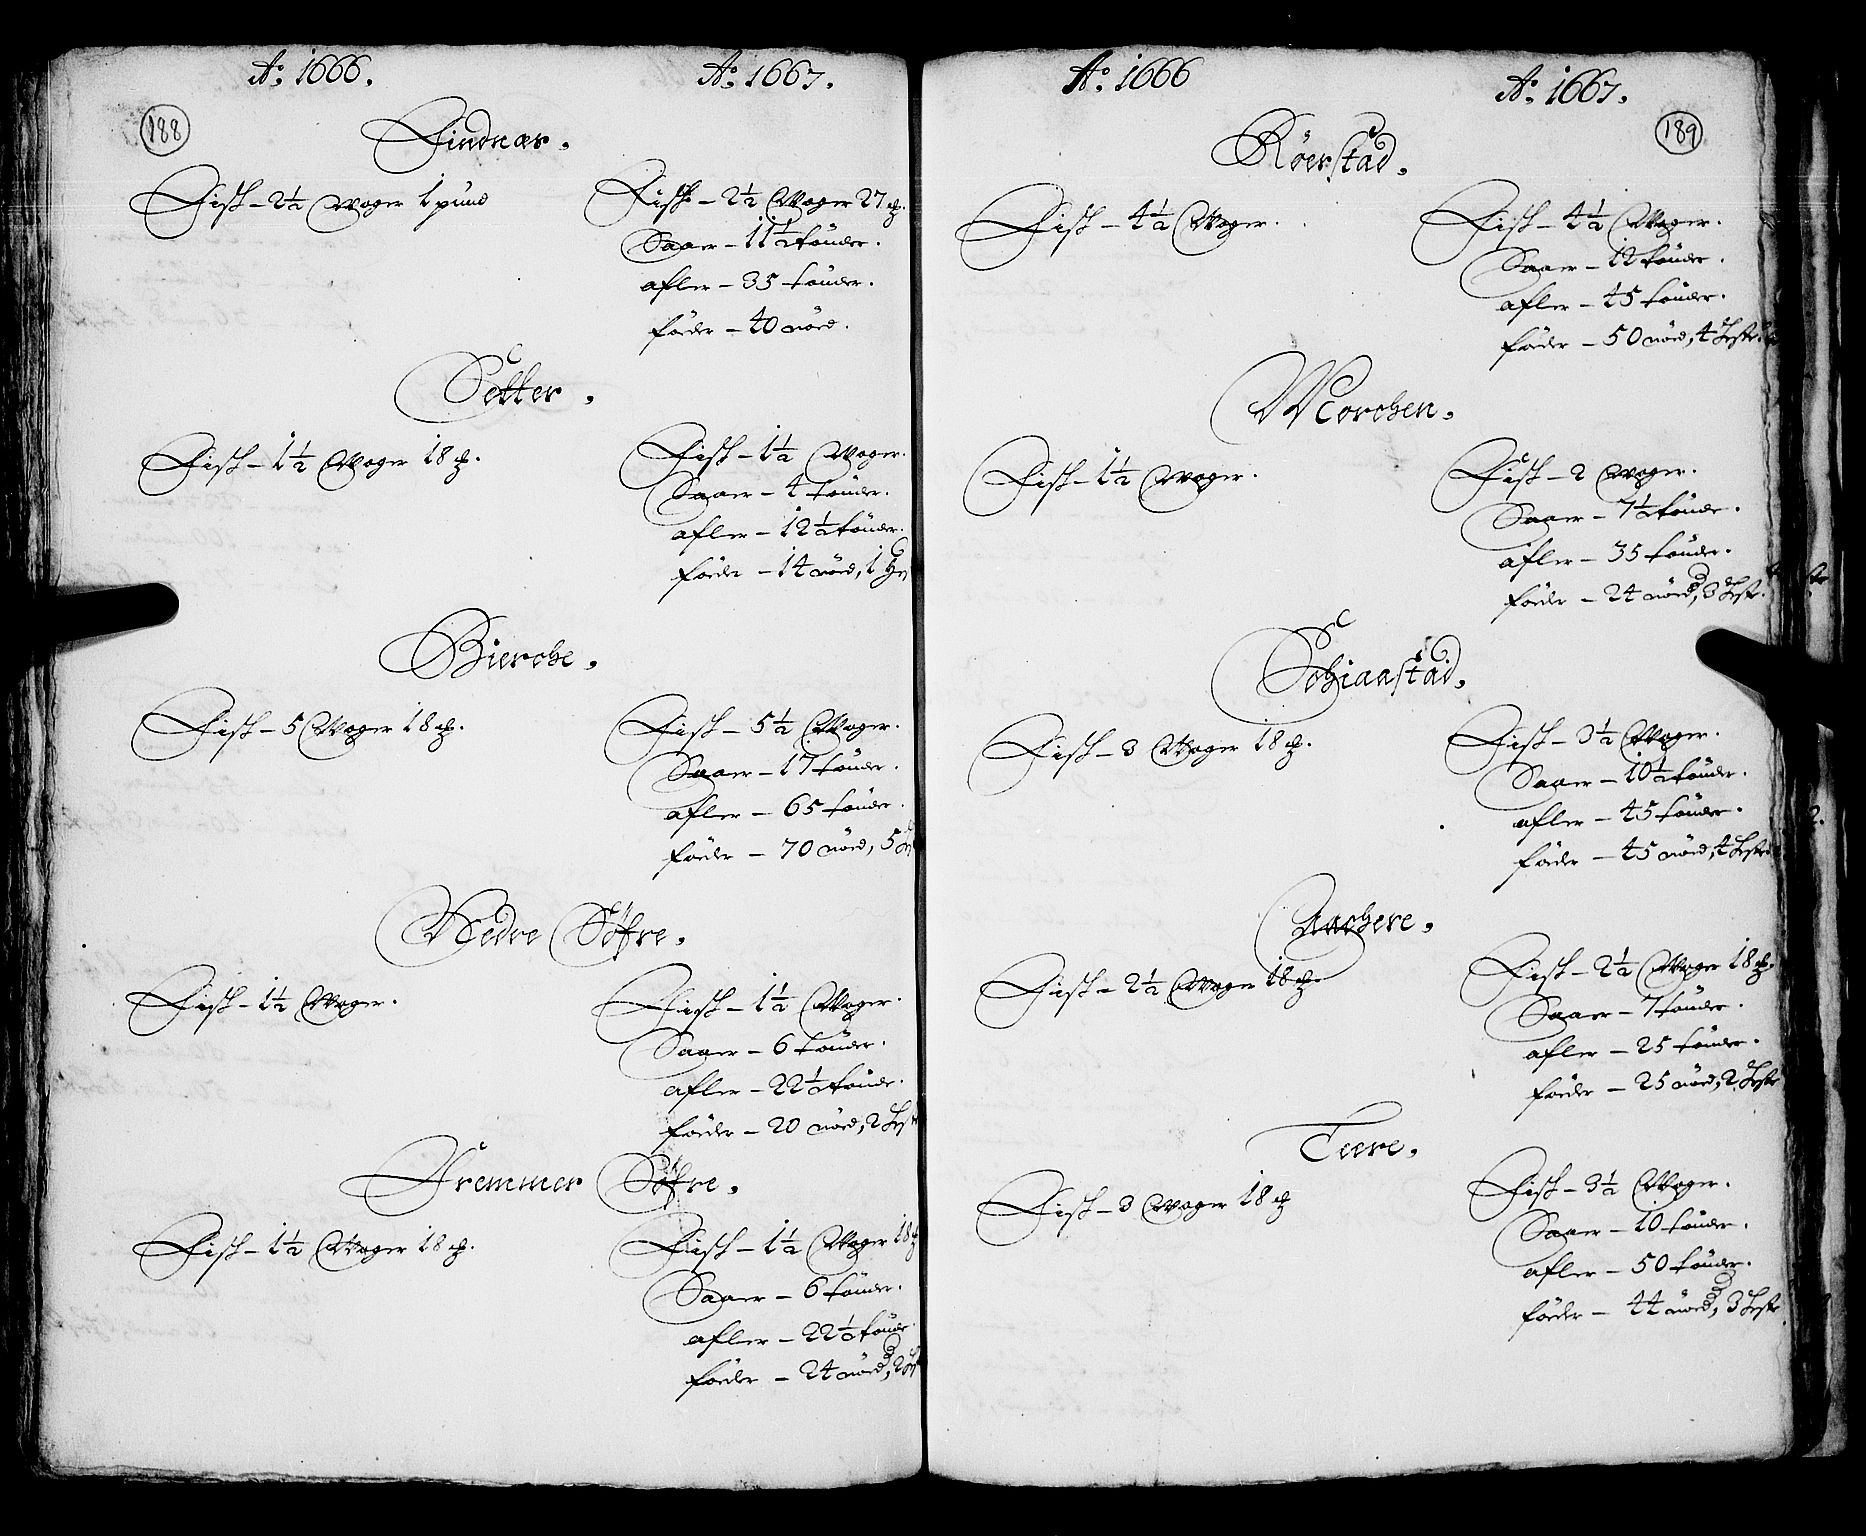 188
Ao. 1666. Ao. 1667.
Findnær.
Fisk – 2½ Woger 1 pund
Fisk – 2½ Woger 27 ℔.
Saaer – 11½ tønder.
afler – 35 tønder.
føder – 40 nød.
Setter.
Fisk – 1½ Woger 18 ℔.
Fisk – 1½ Woger.
Saaer – 4 tønder.
afler – 12½ tønder.
føder – 14 nød, 1 Hest
Bierche.
Fisk – 5 Woger 18 ℔.
Fisk – 5½ Woger.
Saaer – 17 tønder.
afler – 65 tønder.
føder – 70 nød, 5
Nedre Søfre.
Fisk – 1½ Woger.
Fisk – 1½ Woger.
Saaer – 6 tønder.
afler – 22½ tønder.
føder – 20 nød, 2 Hest
Fremmer Søfre.
Fisk – 1½ Woger 18 ℔.
Fisk – 1½ Woger 18 ℔
Saaer – 6 tønder.
afler – 22½ tønder.
føder – 24 nød, 2
189
Ao. 1666 Ao. 1667.
Røerstad.
Fisk – 4½ Woger.
Fisk – 4½ Woger.
Saaer – 12 tønder.
afler – 45 tønder.
føder – 50 nød, 4 Heste.
Morchen.
Fisk – 1½ Woger.
Fisk – 2 Woger.
Saaer – 7½ tønder.
afler – 35 tønder.
føder – 24 nød, 3 Heste.
Schiaastad.
Fisk – 3 Woger 18 ℔.
Fisk – 3½ Woger.
Saaer – 10½ tønder.
afler – 45 tønder.
føder – 45 nød, 4 Heste
Aachere.
Fisk – 2½ Woger 18 ℔.
Fisk – 2½ Woger 18 ℔.
Saaer – 7 tønder.
afler – 25 tønder.
føder – 25 nød, 2 Heste
Teere.
Fisk – 3 Woger 18 ℔
Fisk – 3½ Woger.
Saaer – 10 tønder.
afler – 50 tønder.
føder – 44 nød, 3 Heste.